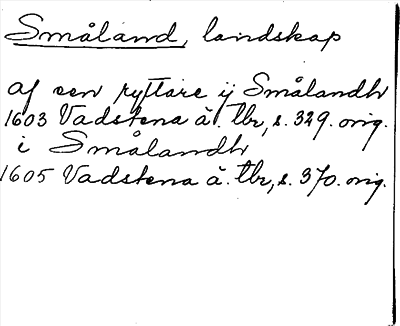 Småland, landskap
af een ryttare ij Smålandh
1603 Vadstena ä. tbr, s. 329. orig.
i Smålandh
1605 Vadstena ä. tbr, s. 370. orig.